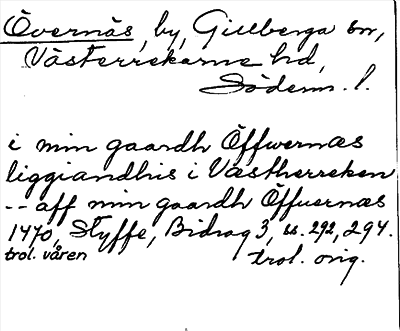 Övernäs, by, Gillberga sn,
Västerrekarne hd,
Söderm. l.
i min gaardh Öffwernæs
liggiandhis i Västherreken
-- aff min gaardh Öffuernæs
1470, Styffe, Bidrag 3, ss. 292, 294.
trol. våren trol. orig.